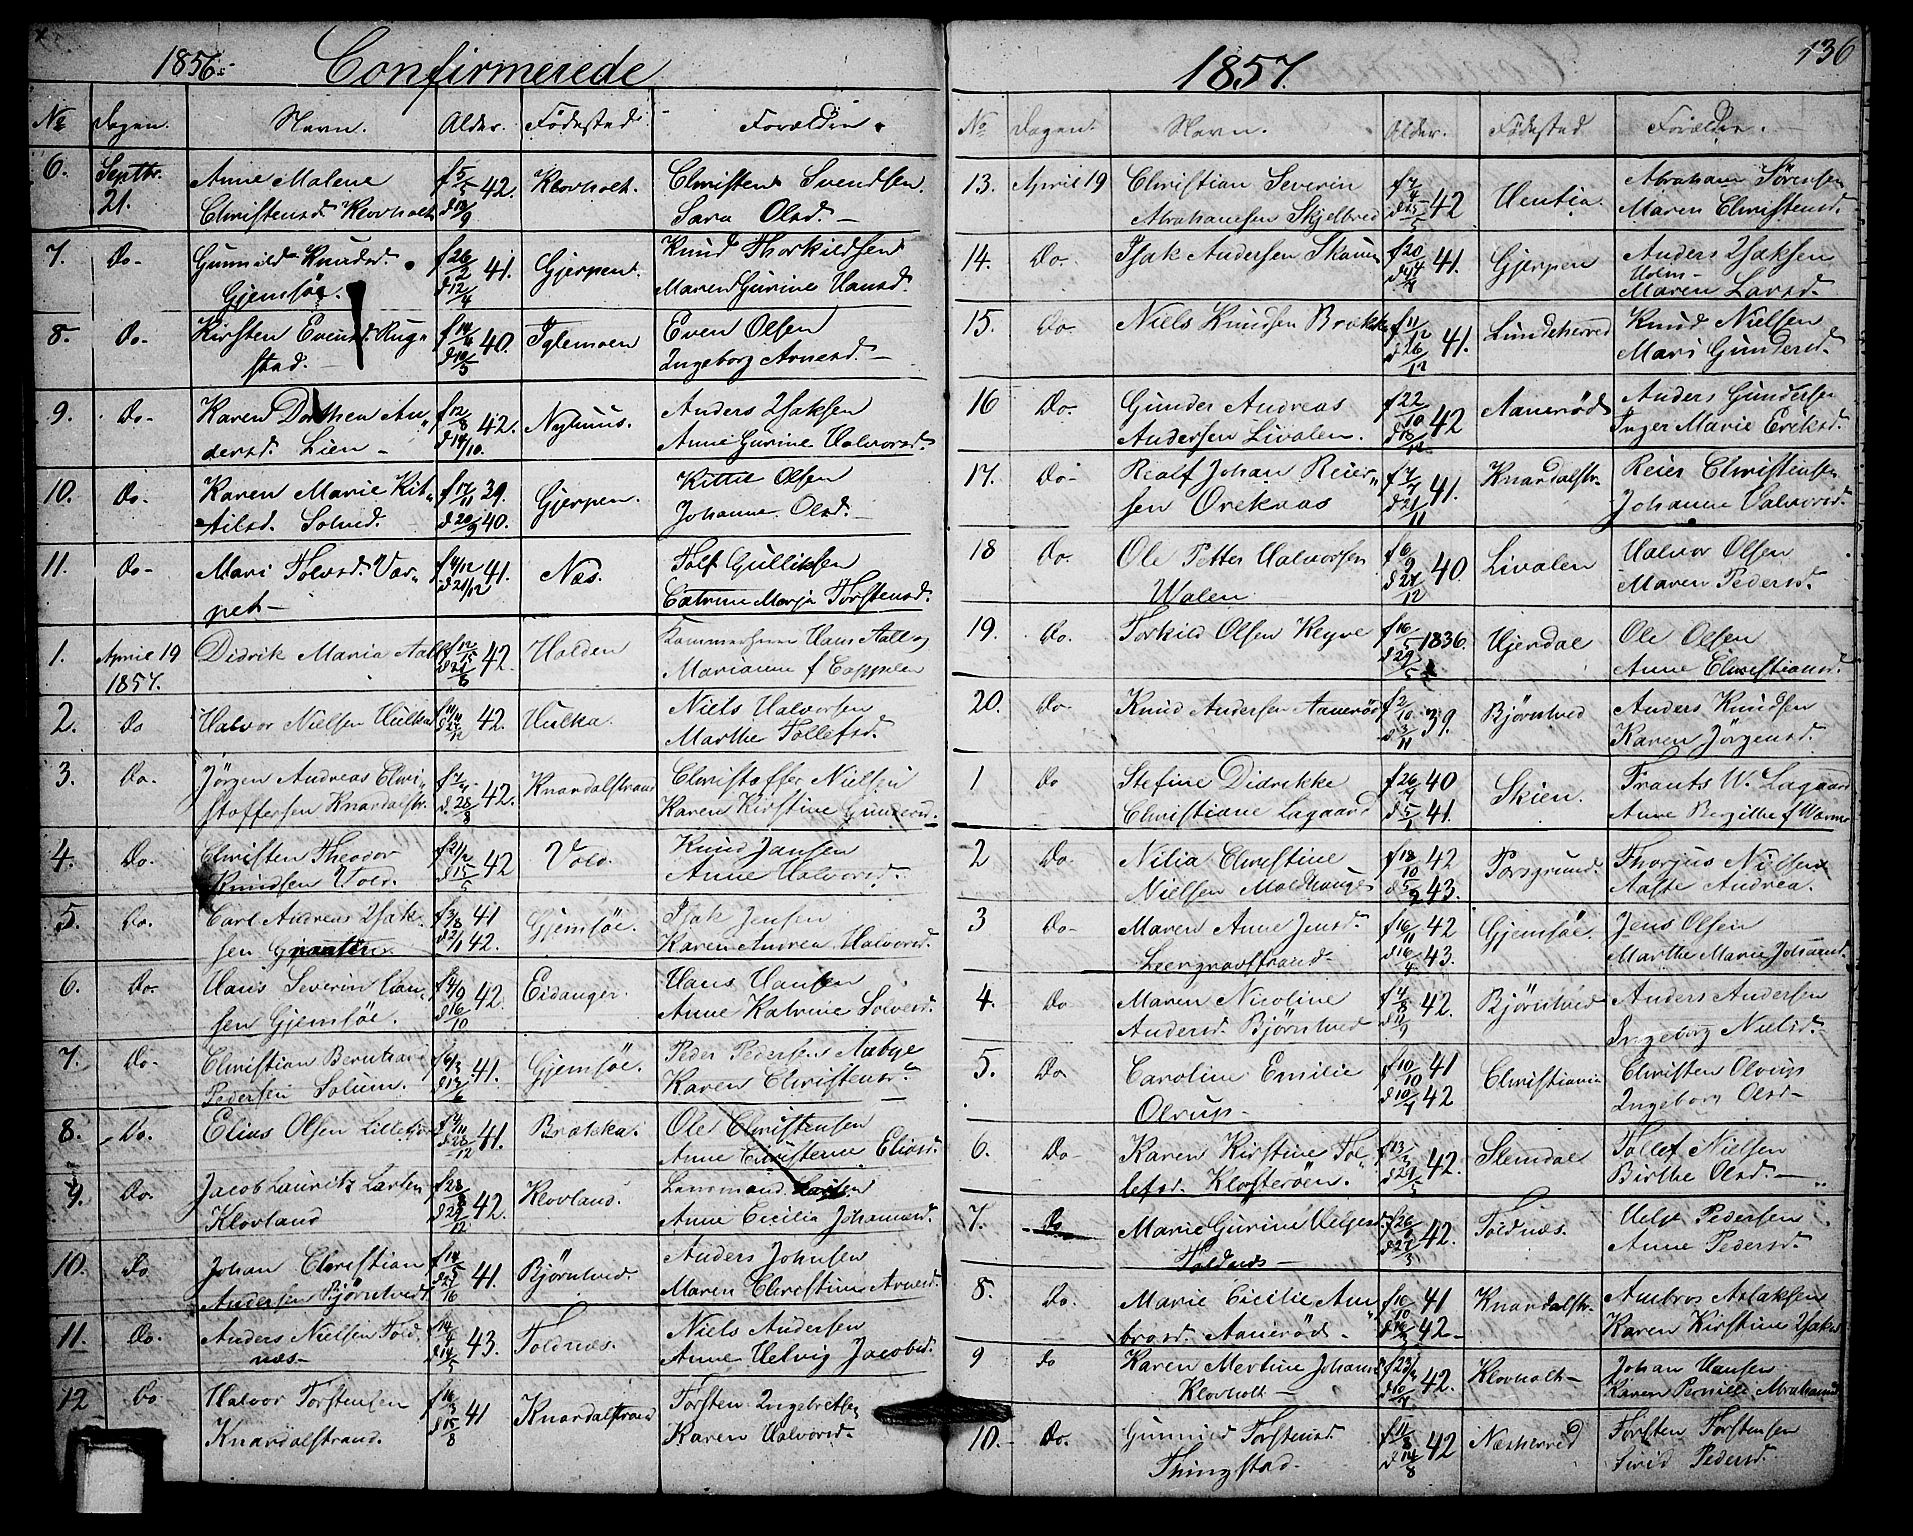 1856 Confirmerede
No Dagen. Navn. Alder. Fødested Forældre.
6. Septbr. 21. Anne Malene f 5/5 42. Klovholt. Christen Svendsen
Christensd Klovholt d 18/9 Sara Olsd. –
7. Do– Gunnild Knudsd. f 26/2 41. Gjerpen. Knud Thorkildsen
Gjemsøe. d 12/4 Maren Gurine Hansd.
8. Do– Kirsten Evensd. Rug= f 14/4 40. Iglemoen Even Olsen
stad. – d 10/5 Ingeborg Arnesd. –
9. Do– Karen Dorthea An= f 12/8 42. Nyhuus. Anders Isaksen
dersd. Lien – d 14/10. Anne Gurine Halvorsd.
10. Do– Karen Marie Kit= f 17/11 39. Gjerpen. Kittil Olsen
tilsd. Solum. d 20/9 40. Johanne Olsd. –
11. Do– Mari Tolvsd. Var= f 4/12 41. Næs. Tolf Gulliksen
net – d 21/12 Catrine Marja Torstensd.
1. April 19 Didrik Maria Aall f 12/15 42. Holden Kammerherre Hans Aall og
1857. Marianne f Cappelen
2. Do Halvor Nielsen Hulka 42. Hulka. Niels Halvorsen
Marthe Tollefsd.
3. Do. Jørgen Andreas Chri= f 7/4 42. Knardalstrand Christoffer Nielsen
stoffersen Knardalstr. d. 28/8 Karen Kirstine Gundersd.
4. Do. Christen Theodor f 21/2 42 Vold. Knud Jansen
Knudsen Vold. d 15/5 Anne Halvorsd.
5. Do. Carl Andreas Isak= f 3/8 41 Gjemsøe. Isak Jensen
sen d 2/1 42. Karen Andrea Halvorsd.
6. Do– Hans Severin Han= f 4/9 42. Eidanger. Hans Hansen
sen Gjemsøe. d 16/10 Anne Katrine Solvesd.
7. Do– Christian Bernthar f 6/3 41. Gjemsøe. Peder Pedersen Aabye
Pedersen Solum. d 13/6 Karen Christensd.
8. Do. Elias Olsen Lillefjære 41. Bratska. Ole Christensen
d 28/12 Anne Christerne Eliasd.
9. Do. Jacob Lauritz Larsen f 28/8 42. Klovland. Lansmand Larsen
Klovland d 28/12 Anne Cicilia Johannesd.
10. Do Johan Christian f 14/5 41. Bjørntved. Anders Johnsen
Andersen Bjørntvedt d 27/16 Maren Christine Arnesd.
11. Do. Anders Nielsen Told= f 14/4 43. Toldnæs. Niels Andersen
næs – d 14/5 Anne Helvig Jacobsd.
12 Do Halvor Torstensen f 16/3 41 Knardalstrand Torsten Ingebretsen
Knardalstrand. d 15/8 Karen Halvorsd.
1857. 136
No. Dagen. Navn. Alder. Fødested Forældre. –
13. April 19 Christian Severin f 7/4 42 Ventia Abraham Sørensen
Abrahamsen Skjelbred d 25/5 Maren Christensd.
14. Do. Isak Andersen Skauen f 20/ 41. Gjerpen Anders Isaksen
Holm–
d 14/9 Maren Larsd.
15. Do. Niels Knudsen Brække f 11/12 41. Lundeherred Knud Nielsen
d 26/12 Mari Gundersd.
16 Do– Gunder Andreas f 22/10 42 Aanerød Anders Gundersen
Andersen Livalen. d 18/12 Inger Marie Eriksd.
17. Do– Realf Johan Reier= f 7/7 41. Knardalstr. Reier Christensen
sen Orekaas d 21/11 Johanne Halvorsd.
18 Do. Ole Petter Halvorsen f 6/9 40. Livalen Halvor Olsen
Walen d 27/12 Maren Pedersd.
19. Do. Torkild Olsen Heyve f 16/5 1836. Hjerdal Ole Olsen
d 29/5 Anne Christiansd.
20. Do. Knud Andersen Aanerød f 2/10 39. Bjørntved Anders Knudsen
d 3/11 Karen Jørgensd.
1 Do Stefine Didrikke f 26/7 40 Skien. Frants W. Lagaard
Christiane Lagaard d 5/1 41. Anne Bergithe f Warmo
2 Do. Nilia Christine f 18/10 42 Porsgrund. Thorjus Nielsen
Nielsen Moldhauge d 5/2 43. Aaste Andrea.
3 Do. Maren Anne Jensd. f 16/11 42 Gjemsøe. Jens Olsen
Leergravstrand. d 16/4 43. Marthe Marie Johannd.
4. Do Maren Nicoline f 4/8 42. Bjørntved Anders Andersen
Andersd. Bjørntved d 11/9 Ingeborg Nielsd. –
5. Do Caroline Emilie f 10/10 41 Christiania Christen Olrups
Olrup – d 10/7 42 Ingeborg Olsd –
6. Do– Karen Kirstine Tol= f 13/2 42. Slemdal Tollef Nielsen
lefsd. Klosterøen. d 29/5 Birthe Olsd. –
7. Do Marie Gurine Helgesd. f 26/ 42. Toldnæs. Helge Pedersen
Toldnæs – d 27/3 Anne Pedersd.
8. Do. Marie Cicilie Am f 10/10 41 Knardalstr. Ambros Aslaksen
brosd. Aanerød – d 42– Karen Kirstine Isaksd
9 Do Karen Mertine Johansd f 23/ 42. Klovholt – Johan Hansen
Klovholt – d 10/ Karen Pernille Abrahamsd
10.– Do. Gunnild Torstensd. f 11/8 42 Næsherred Torsten Torstensen
Thingstad. d 14/8 Sirid Pedersd.